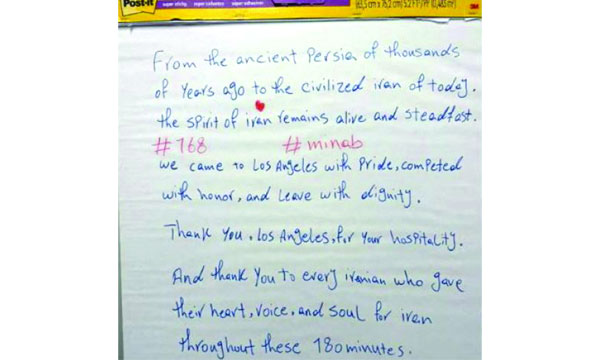 Post-it super sticky super colantes super adhesivo
63,5 cm x 76,2 cm | 5.2 Ft² / Pi² (0,483 m²) 3M
From the ancient Persia of thousands
of years ago to the civilized iran of today.
the spirit of iran remains alive and steadfast.
#168 #minab
we came to Los Angeles with Pride, competed
with honor, and Leave with dignity.
Thank you, Los Angeles, for your hospitality.
And thank you to every iranian who gave
their heart, voice, and soul for iran
throughout these 180 minutes.